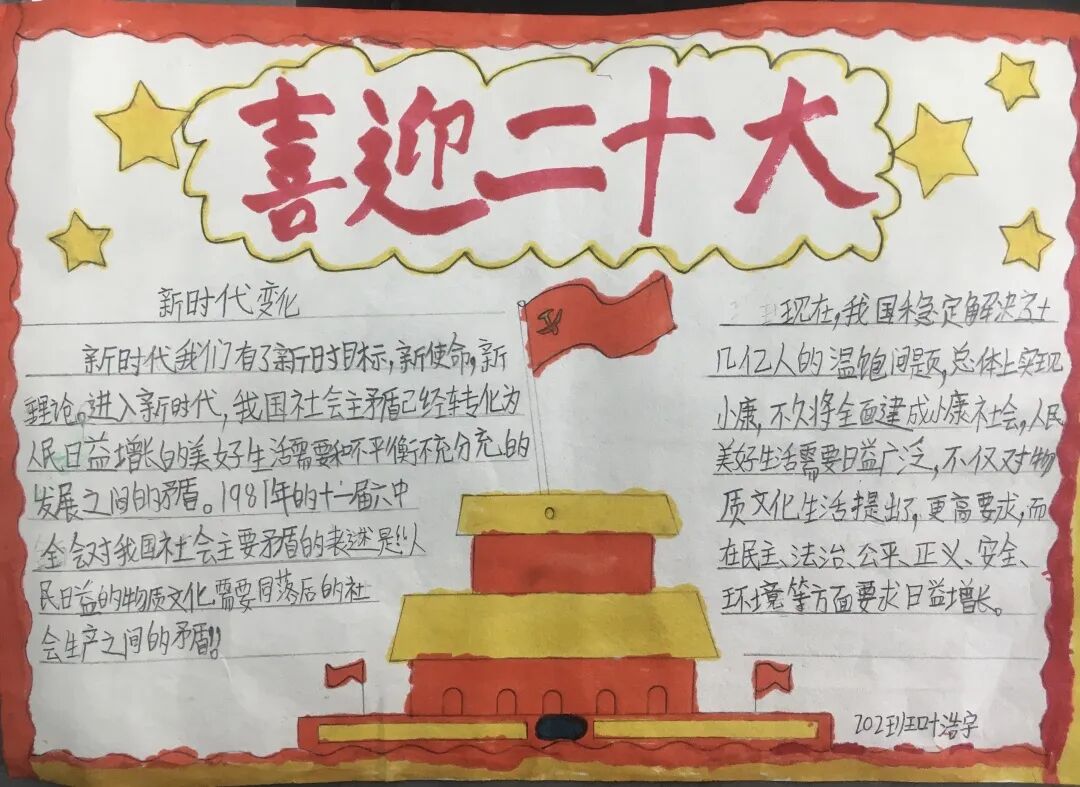 喜迎二十大
新时代变化
新时代我们有了新时目标,新使命,新
理论。进入新时代,我国社会主矛盾已经转化为
人民日益增长的美好生活需要和不平衡不充分充的
发展之间的矛盾。1981年的十一届六中
全会对我国社会主要矛盾的表述是:"人
民日益的物质文化需要同落后的社
会生产之间的矛盾!!
现在,我国稳定解决了十
几亿人的温饱问题,总体上实现
小康,不久将全面建成小康社会,人民
美好生活需要日益广泛,不仅对物
质文化生活提出了,更高要求,而
在民主、法治、公平、正义、安全、
环境等方面要求日益增长。
202班叶浩宇